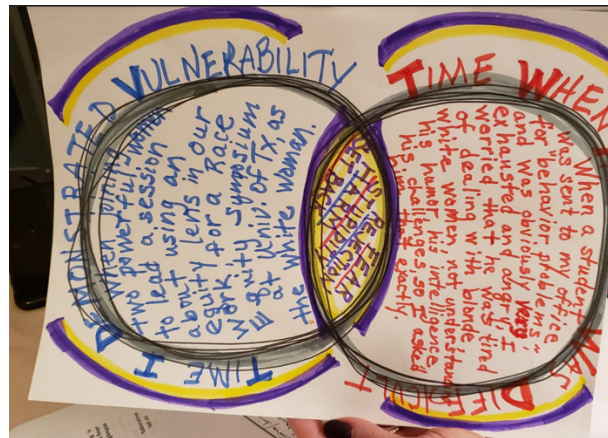 TIME I DEMONSTRATED VULNERABILITY
when joining
two powerful women
to lead a session
about using an
equity lens in our
work for a Race
Equity Symposium
at Univ. of TX as
the white woman.
FEAR
REJECTION
STUPIDITY
SET BACK
TIME WHEN
WAS DIFFICULT
When a student
was sent to my office
for "behavior problems"
and was obviously very
exhausted and angry, I
worried that he was tired
of dealing with blonde
white women not understanding
his humor, his intelligence,
his challenges, so I asked
him that exactly.